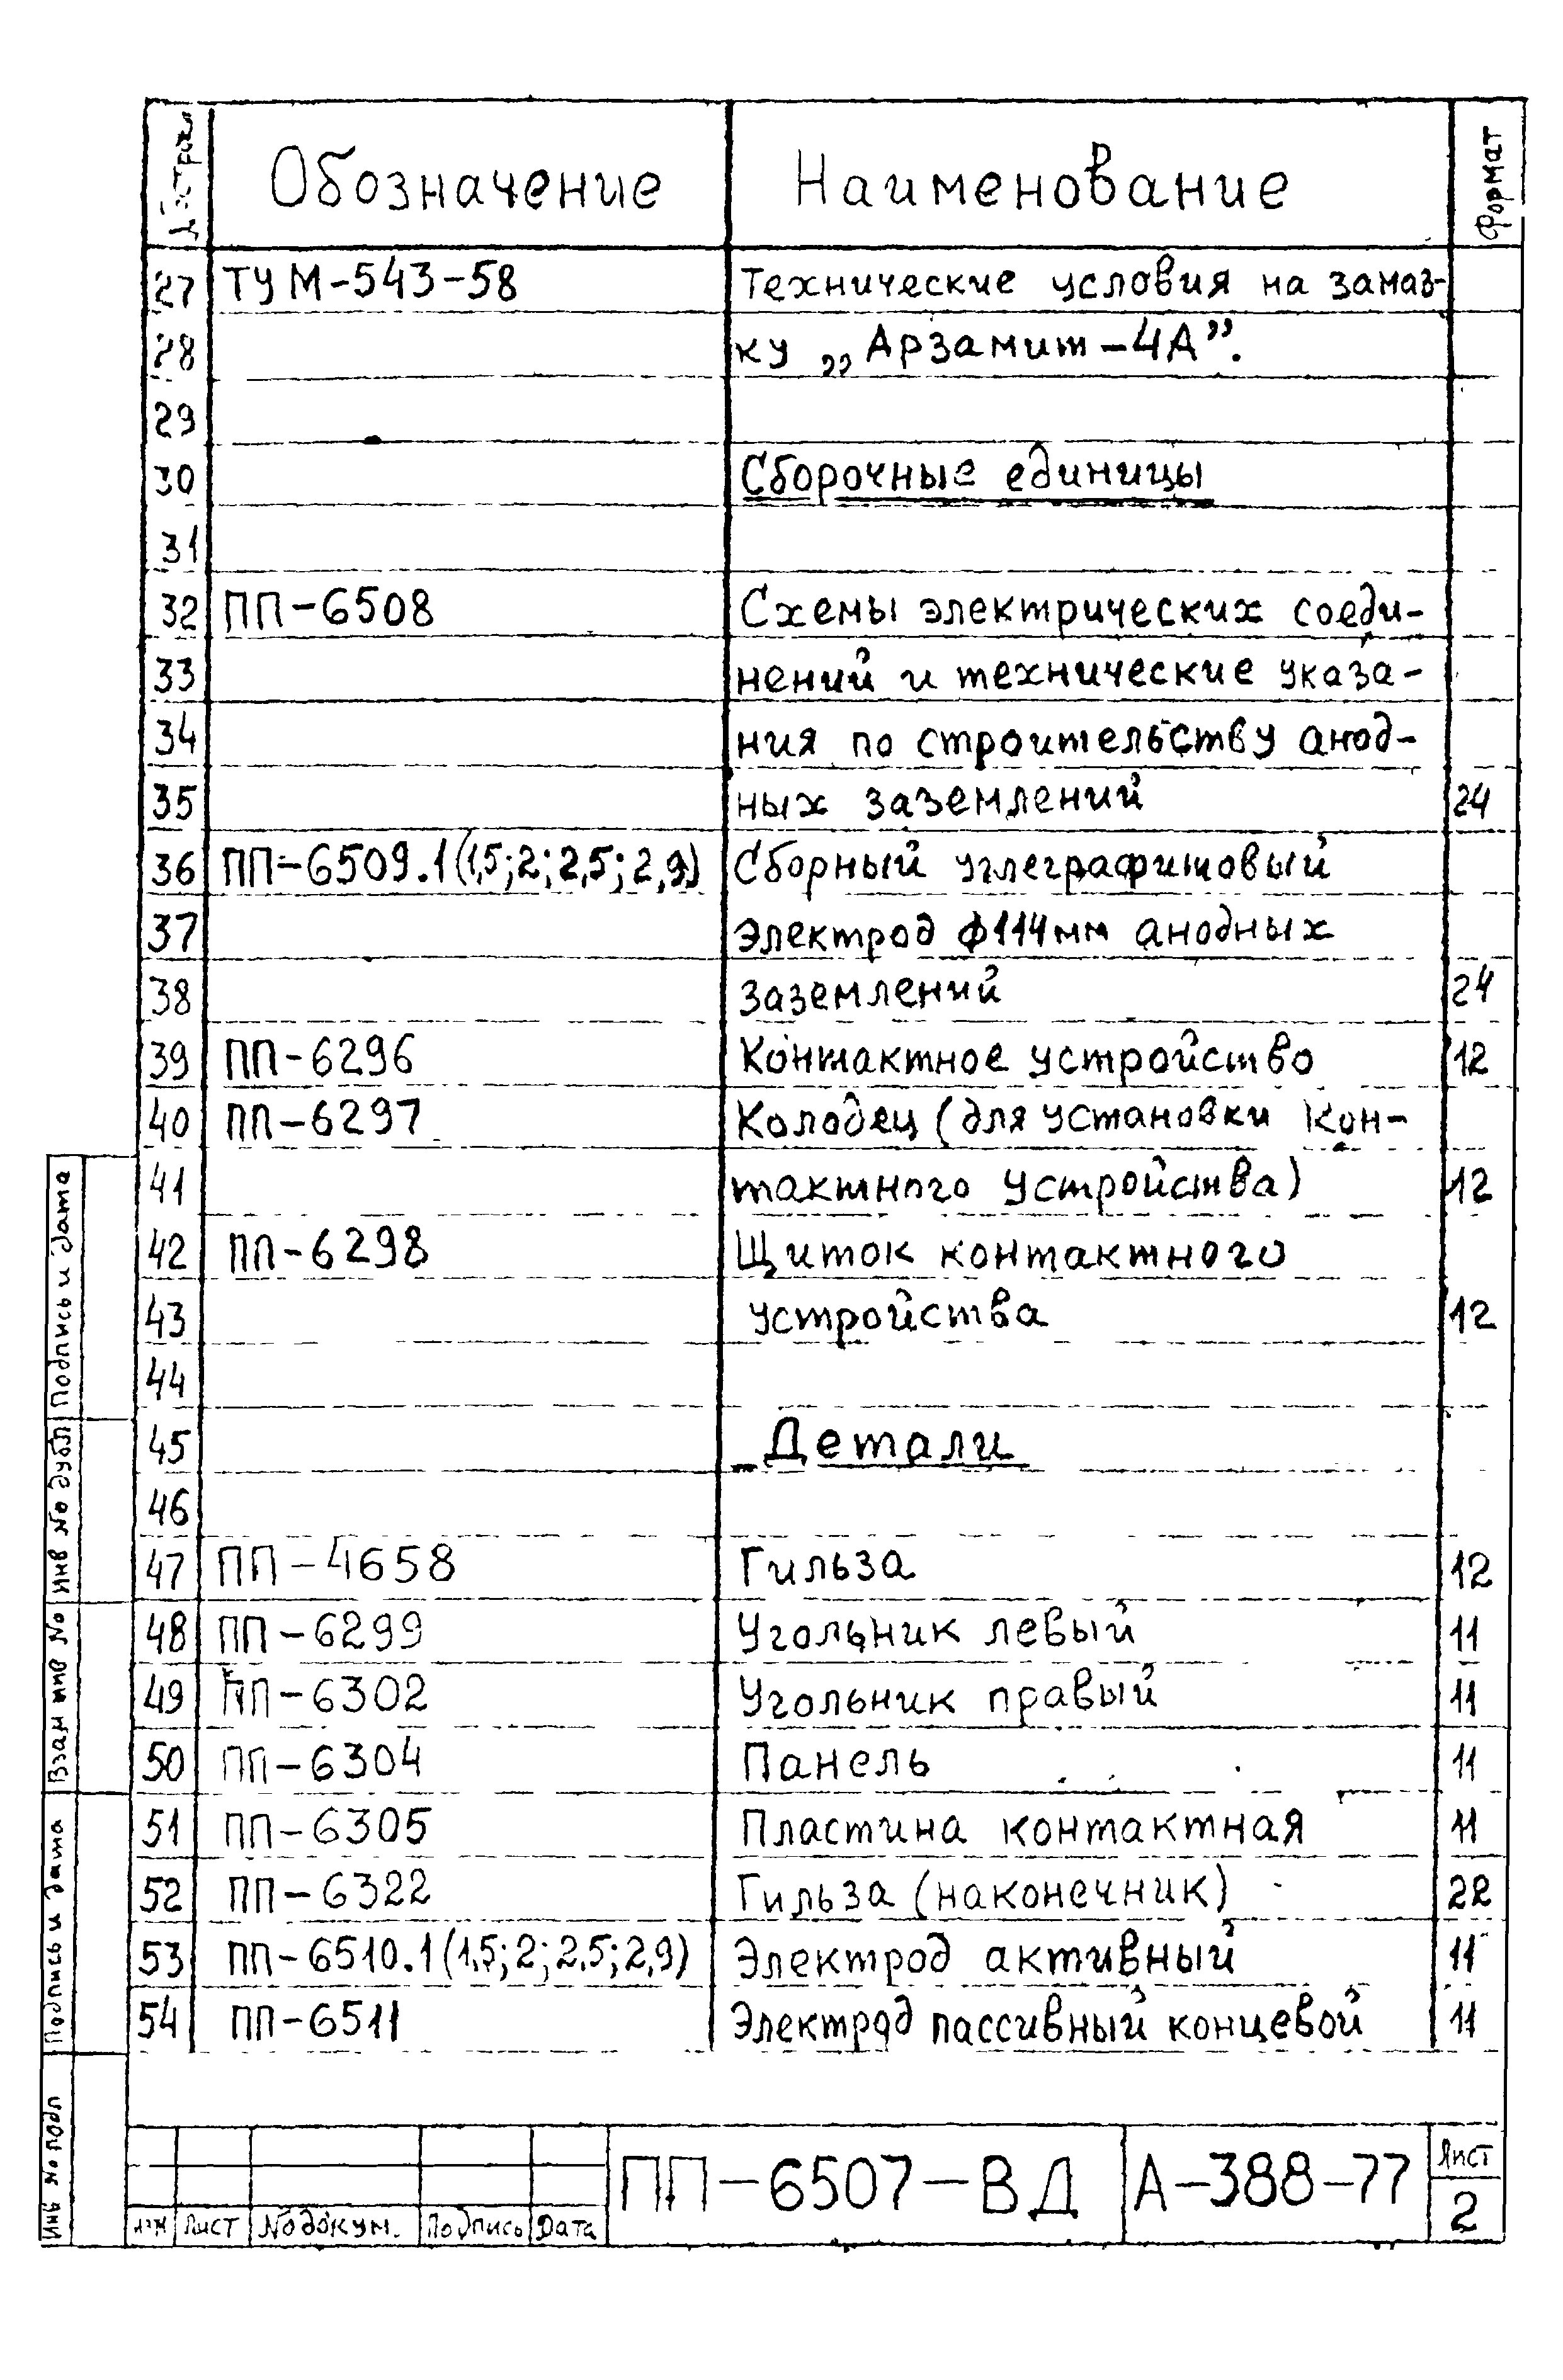 № строки Обозначение Наименование Формат
27 ТУ М-543-58 Технические условия на замаз-
28 ку „Арзамит-4А”.
29
30 Сборочные единицы
31
32 ПП-6508 Схемы электрических соеди-
33 нений и технические указа-
34 ния по строительству анод-
35 ных заземлений 24
36 ПП-6509.1(1,5;2;2,5;2,9) Сборный углеграфитовый
37 электрод ф114мм анодных
38 заземлений 24
39 ПП-6296 Контактное устройство 12
40 ПП-6297 Колодец (для установки кон-
41 тактного устройства) 12
42 ПП-6298 Щиток контактного
43 устройства 12
44
45 Детали
46
47 ПП-4658 Гильза 12
48 ПП-6299 Угольник левый 11
49 ПП-6302 Угольник правый 11
50 ПП-6304 Панель 11
51 ПП-6305 Пластина контактная 11
52 ПП-6322 Гильза (наконечник) 22
53 ПП-6510.1(1,5;2;2,5;2,9) Электрод активный 11
54 ПП-6511 Электрод пассивный концевой 11
Подпись и дата
Инв № дубл
Взам инв №
Подпись и дата
Инв № подл
Изм Лист № докум. Подпись Дата
ПП-6507-ВД А-388-77 Лист
2